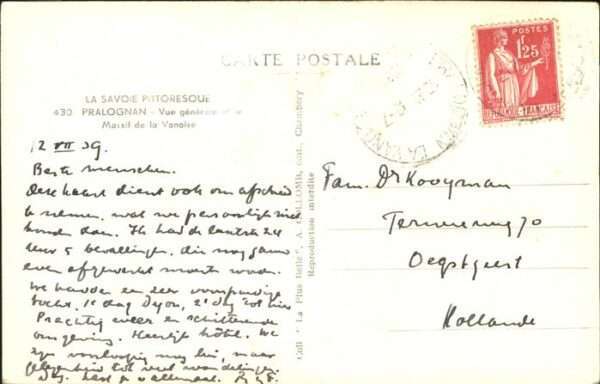 CARTE POSTALE
LA SAVOIE PITTORESQUE
430 PRALOGNAN - Vue générale et le
Massif de la Vanoise
12 VII 39.
Beste menschen.
Deze kaart dient ook om afscheid
te nemen, wat we persoonlijk niet
konden doen. Ik had de laatste 24
uur 5 bevallingen, die nog gauw
even afgewerkt moesten worden.
We hadden een zeer voorspoedige
tocht. 1e dag Dijon, 2e dag tot hier
Prachtig weer en schitterende
omgeving. Heerlijk hôtel. We
zijn voorloopig nog lui, maar
gelegenheid tot veel wandelingen.
Dag. Hartel. allemaal.
Coll "La Plus Belle", A. GOLLOMB, édit., Chambéry
Reproduction interdite
POSTES
1F25
FRANÇAISE
Fam. Dr Kooyman
Terweeweg 70
Oegstgeest
Hollande